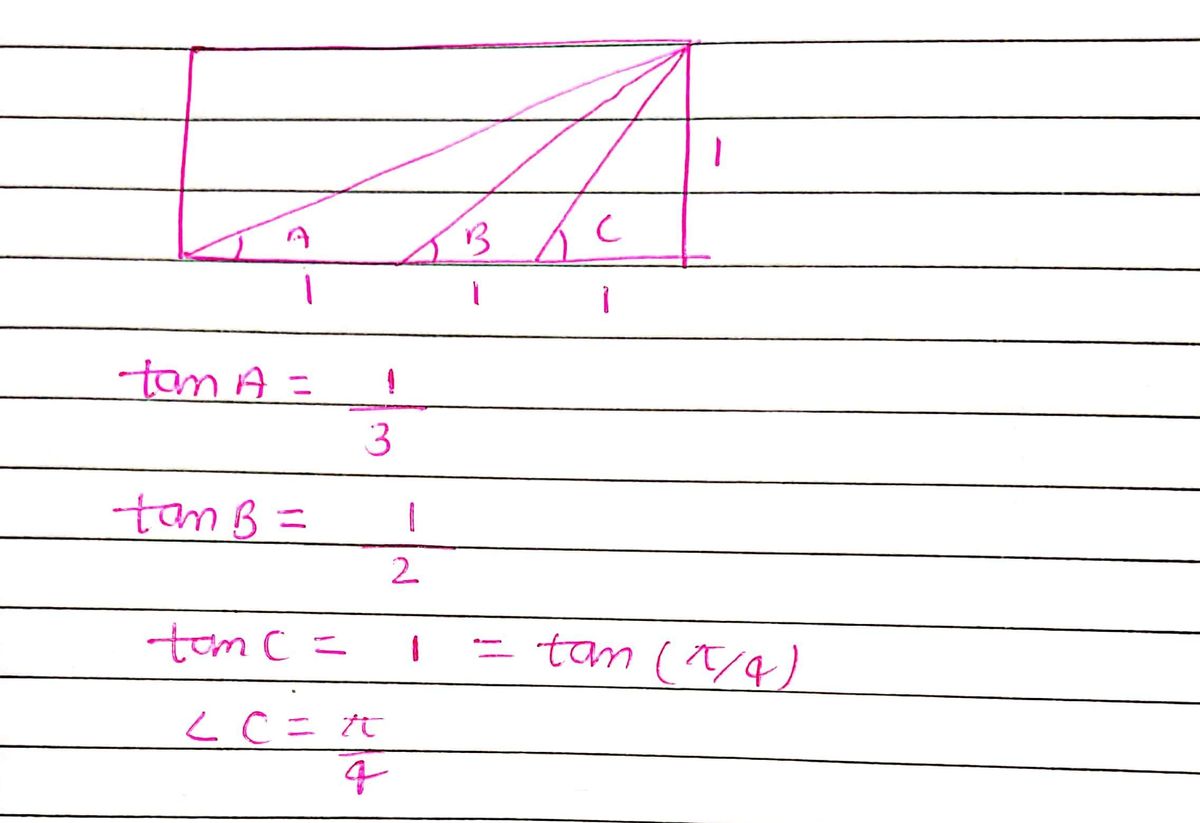 1
A B C
1 1 1
tan A = 1/3
tan B = 1/2
tan C = 1 = tan (π/4)
∠ C = π/4